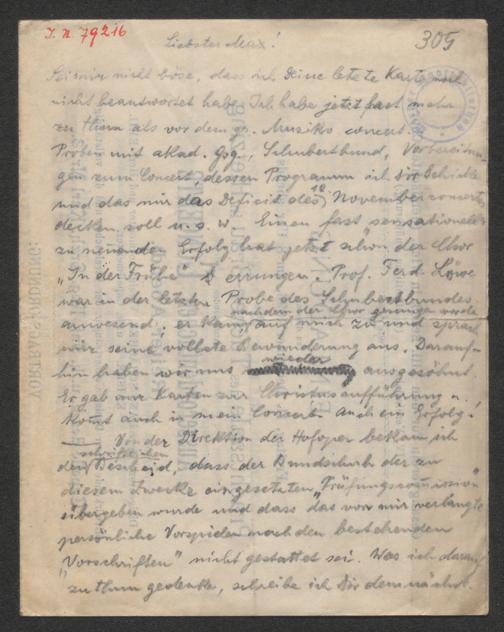 I. N. 79216
305
Liebster Max!
Sei mir nicht böse, dass ich Deine letzte Karte noch
nicht beantwortet habe. Ich habe jetzt fast mehr
zu thun als vor dem gr. Musikv. concert.
Proben mit akad. Gsg., Schubertbund, Vorbereitun-
gen zum Concert, dessen Programm ich Dir schicke
und das mir das Deficit des 12. November concerts
decken soll u. s. w. Einen fast sensationell
zu nennenden Erfolg hat jetzt schon der Chor
„In der Frühe" errungen. Prof. Ferd. Löwe
war in der letzten Probe des Schubertbundes
anwesend; er kam, nachdem der Chor gesungen wurde
auf mich zu und sprach
mir seine vollste Bewunderung aus. Darauf-
hin haben wir uns wieder ausgesöhnt.
Er gab mir Karten zur Christusaufführung u.
kommt auch in mein Concert. Auch ein Erfolg!
— Von der Direktion der Hofoper bekam ich
den schriftlichen Bescheid, dass der Bundschuh der zu
diesem Zwecke eingesetzten „Prüfungscommission"
übergeben wurde und dass das von mir verlangte
persönliche Vorspielen nach den bestehenden
„Vorschriften" nicht gestattet sei. Was ich darauf
zu thun gedenke, schreibe ich Dir demnächst.